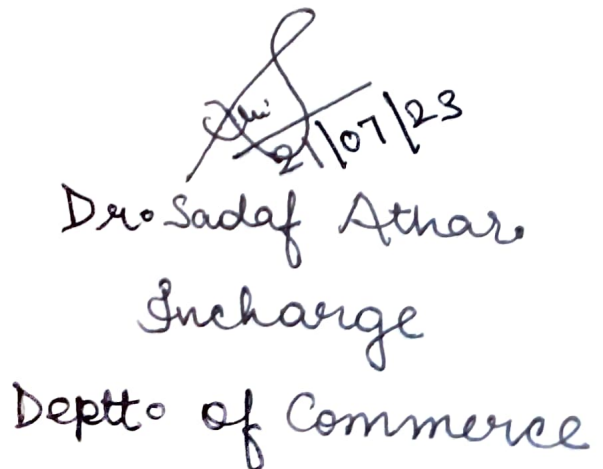 21/07/23
Dr. Sadaf Athar.
Incharge
Deptt. of Commerce